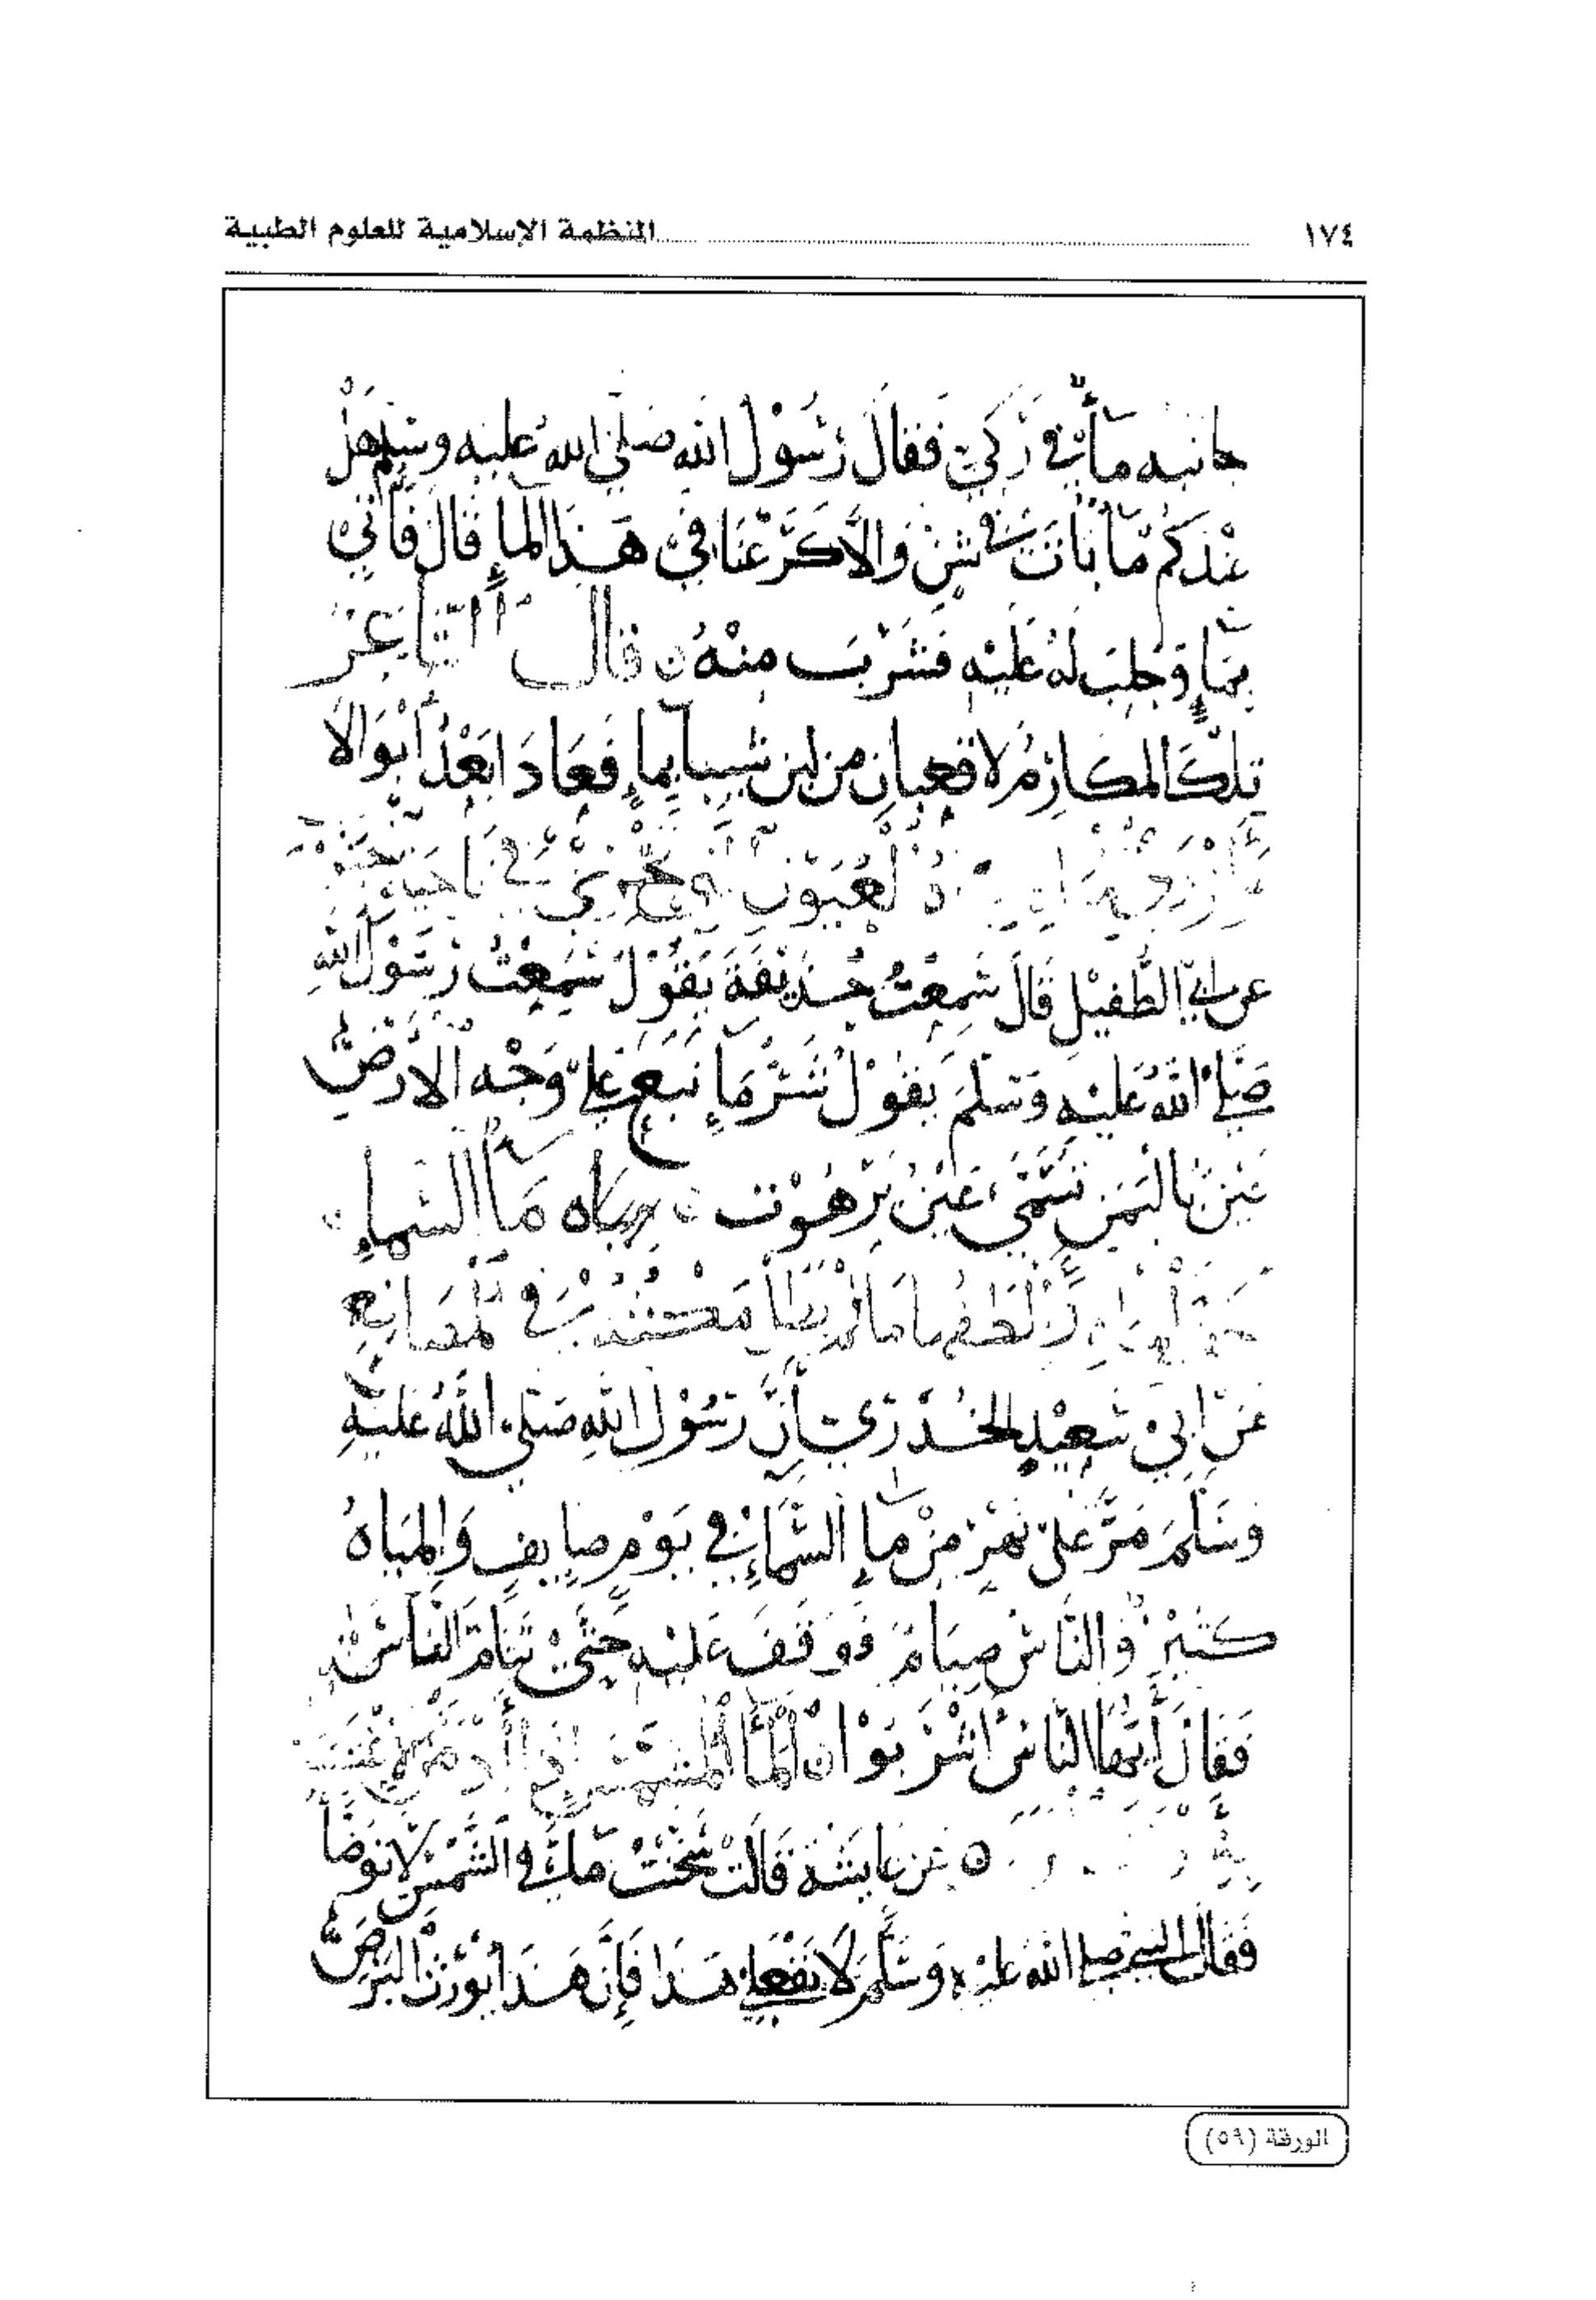 ١٧٤ المنظمة الإسلامية للعلوم الطبية
جانبه مآء في رَكِيّ فَقَالَ رَسُوْل الله صَلى الله عَليه وسلم هَلْ
عِنْدَكم مَآء بَاتَ في شَنّ وَالَّا كَرَعْنَا فيْ هَذَا المآءِ قَالَ فَأُتيَ
بمَآءٍ وَحُلِبَ لهُ عَليْهِ فَشَرْبَ مِنْهُ ن قال الشاعر
تِلْكَ المكَارِمُ لا قعبانِ من لبن شيبا بمآءٍ فَعَادَا بَعْدُ أَبْوَالا
العُيَوْنِ في نَاحيَة
عن ابي الطُّفَيْلِ قَالَ سَمِعْتُ حُذَيْفَةَ يَقُوْلُ سَمِعْتُ رَسُوْلَ اللهِ
صَلى اللهُ عَليْهِ وَسَلَّمَ يَقُوْلُ شَرُّ مَآءٍ نَبَعَ عَليَ وَجْه الأَرْضِ
عَيْنٌ بِاليَمَنِ تُسَمَّى عَيْنُ بَرْهُوْت ن مِيَاه مَآء السَّمَآءِ
في المصَانِعِ
عَنْ ابيْ سَعِيْدٍ الخُدْرَيّ أَنَّ رَسُوْلَ اللهِ صَلى اللهُ عَليْهِ
وَسَلَّمَ مَرَّ عَلى نَهْرٍ مِنْ مآءِ السَّمَآءِ في يَوْمٍ صَايفٍ وَالمِيَاهُ
كَثيْرٌ وَالنَّاسُ صِيَامٌ فَوَقَفَ عَليْهِ حَتَّى تَنَامَّ النَّاسُ
فَقَالَ أَيُّهَا النَّاسُ اشْرَبَوْا ن المآء المشَمَّس
ن عَنْ عَايشَة قَالَتْ سَخَّنْتُ مَآءً في الشَّمْسِ لاتوَضَّأ
فَقَالَ النبي صلى الله عَليْهِ وَسَلَّمَ لَا تَفْعَلِي هَذَا فَإِنَّ هَذَا يُوْرِثُ البَرَصَ
الورقة (٥٩)